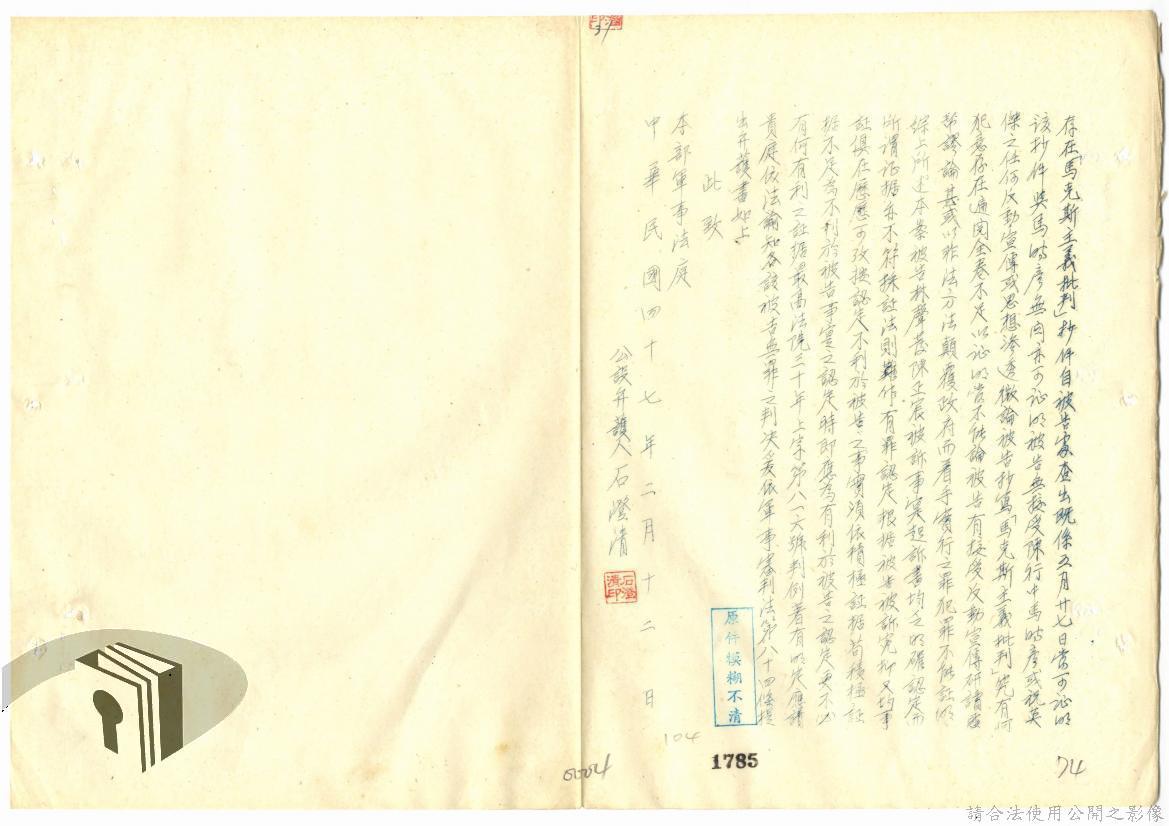 存在「馬克斯主義批判」抄件自被告家查出既係五月廿七日當可証明
該抄件與馬時彥無関亦可証明被告無接受陳行中馬時彥或祝英
傑之任何反動宣傳或思想滲透徵論被告抄寫「馬克斯主義批判」究有何
犯意存在遍閱全卷不足以证明當不能論被告有接受反動宣傳研讀
謬論甚或以非法方法顛覆政府而着手實行之罪犯罪不能証明
綜上所述本案被告林聲發陳正宸被訴事實起訴書均乏明確認定而
所謂证据亦不符採証法則難作有罪認定根据被告被訴究抑又均事
証俱在歷歷可攷按認定不利於被告之事實須依積極証据苟積極証
据不足為不利於被告事實之認定時即應為有利於被告之認定更不必
有何有利之証据最高法院三十年上字第八一六號判例著有明定應請
貴庭依法諭知各該被告無罪之判决爰依軍事審判法第八十四條提
出弁護書如上
此致
本部軍事法庭
中華民國四十七年二月十二日
公設弁護人石澄清
石澄清印
原件模糊不清
104
1785
74
請合法使用公開之影像